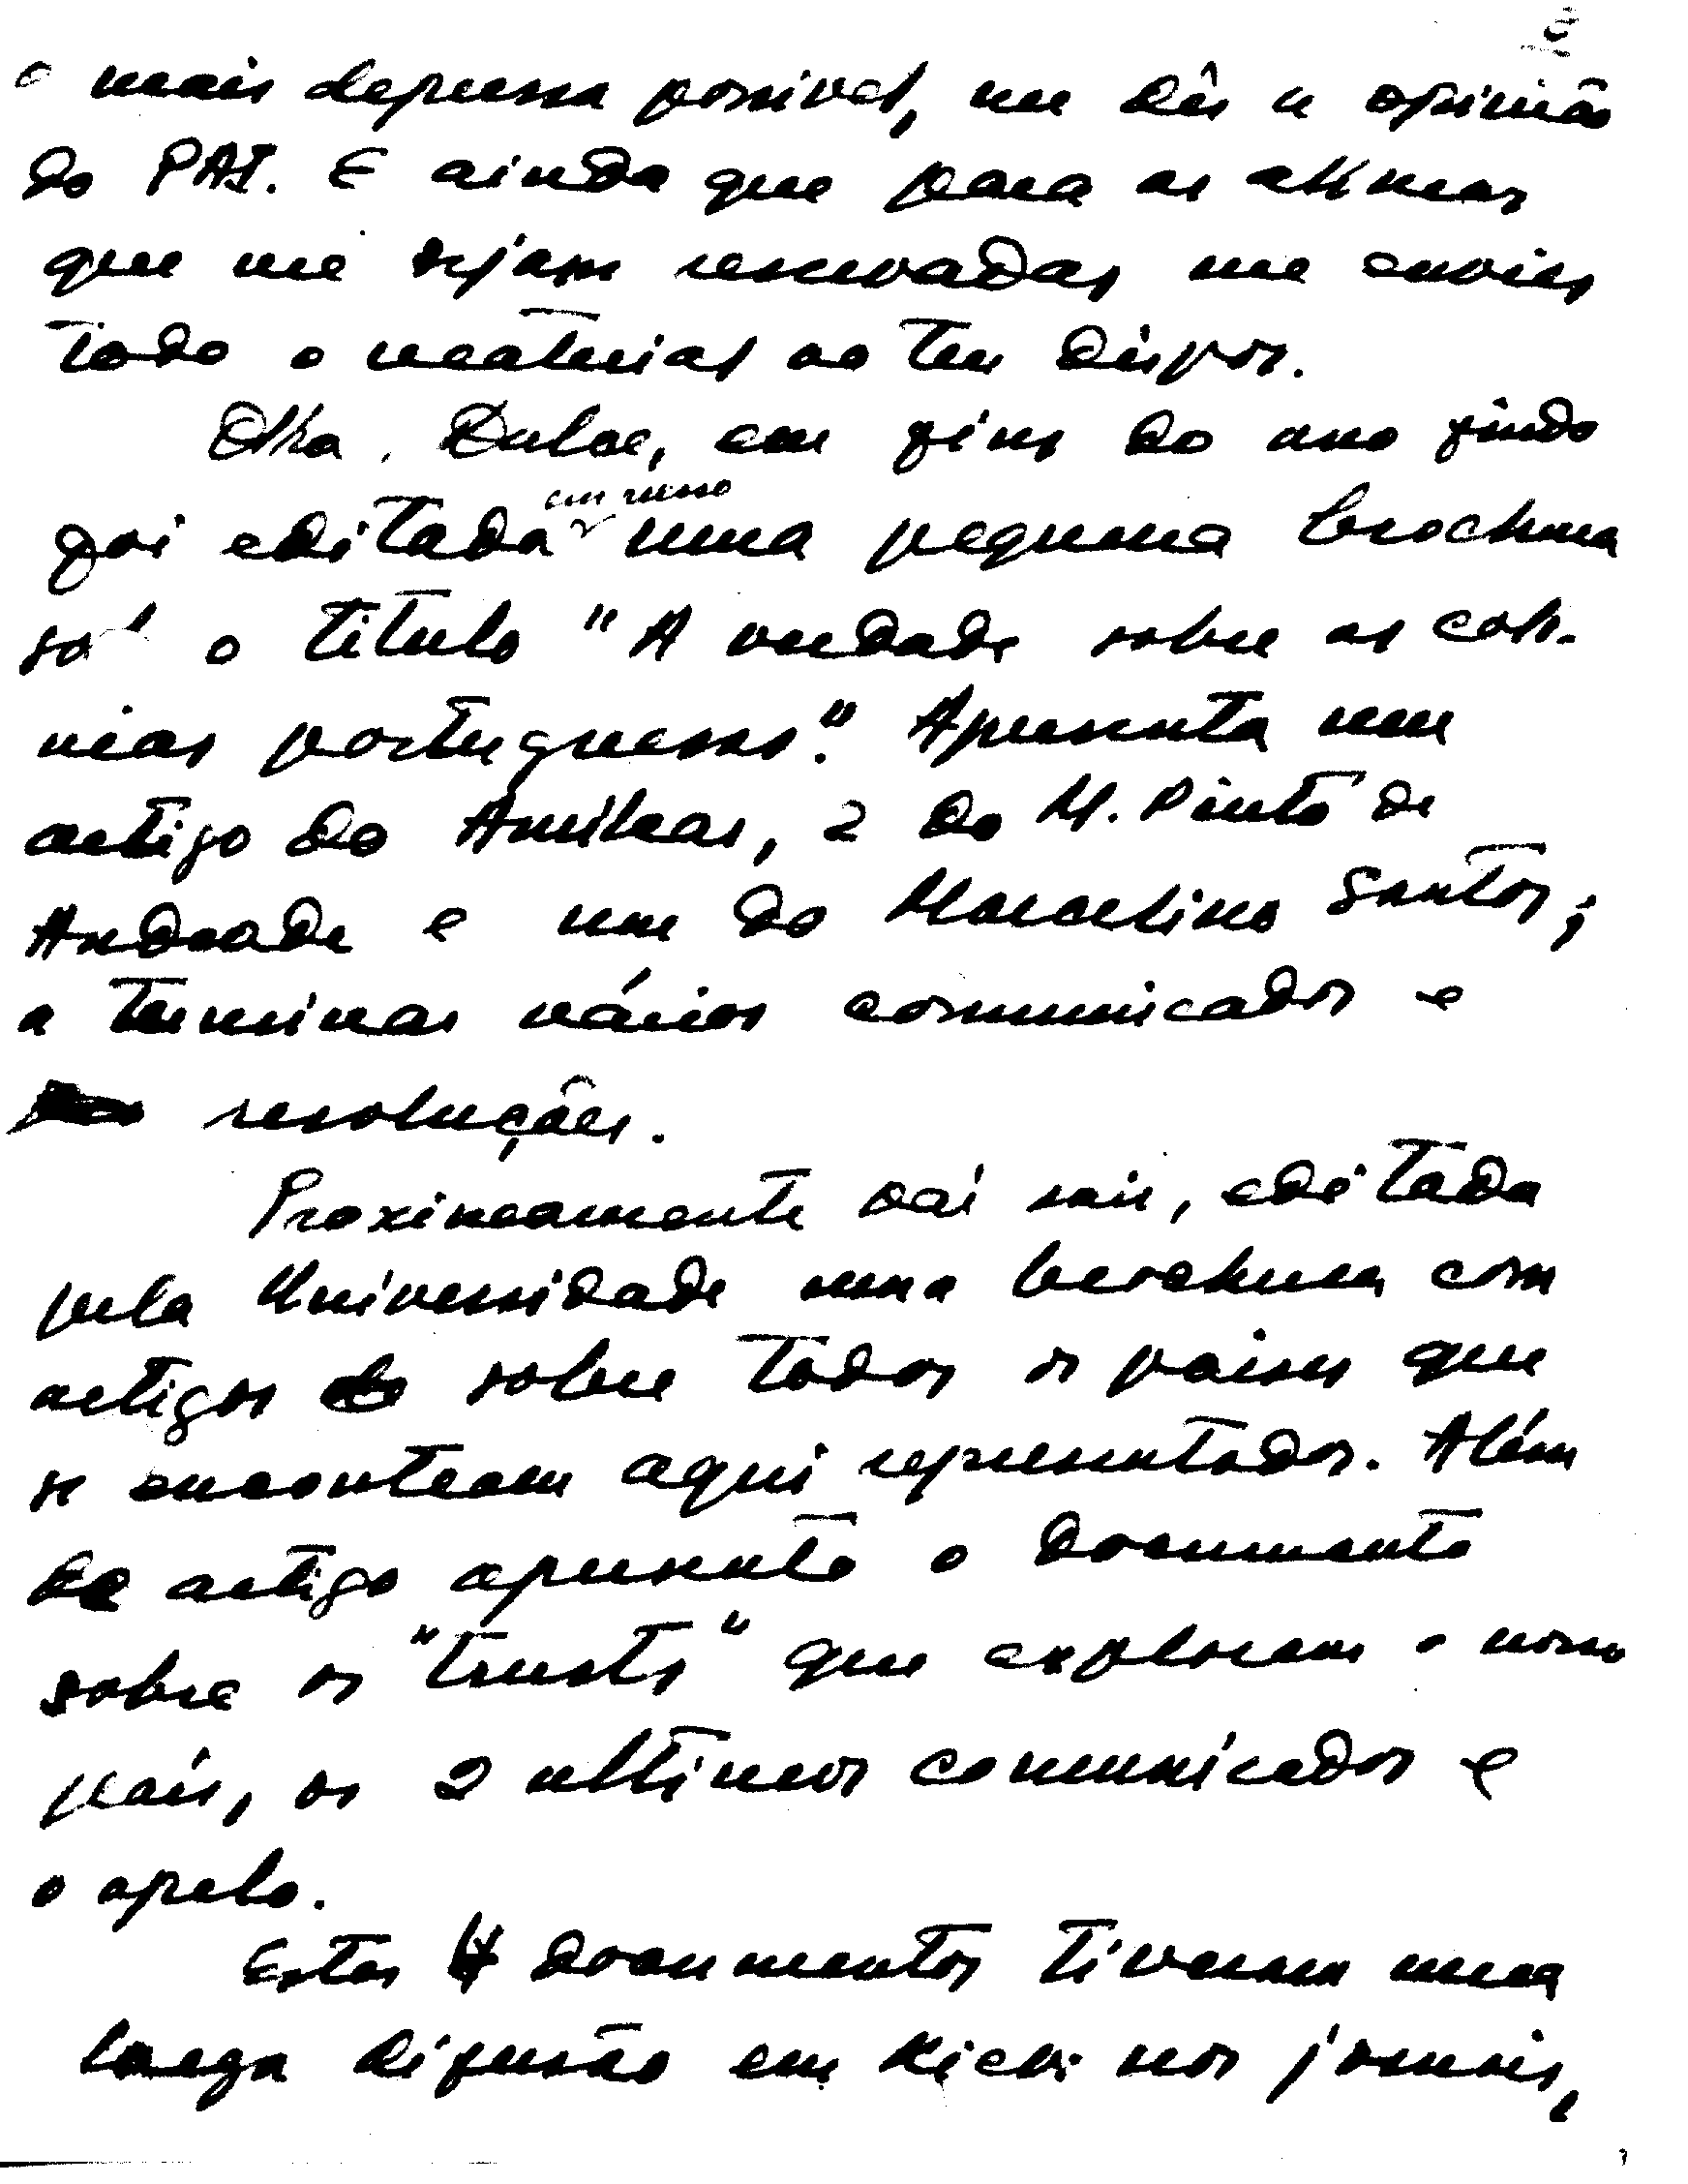 o mais depressa possivel, me dês a opinião
do PAI. E ainda que para as alturas
que me sejam reservadas me envies
todo o material ao teu dispor.
Olha, Dulce, em fins do ano findo
foi editada em russo uma pequena brochura
só o titulo "A verdade sobre as coló-
nias portuguesas". Apresenta um
artigo do Amílcar, 2 do M. Pinto de
Andrade e um do Marcelino Santos;
a terminar vários comunicados e
resoluções.
Proximamente vai sair, editada
pela Universidade uma brochura com
artigos sobre todos os paises que
se encontram aqui representados. Além
de artigo apresento o documento
sobre os "trusts" que exploram o nosso
país, os 2 ultimos comunicados e
o apelo.
Estes 4 documentos tiveram uma
larga difusão em Kiev: nos jornais,